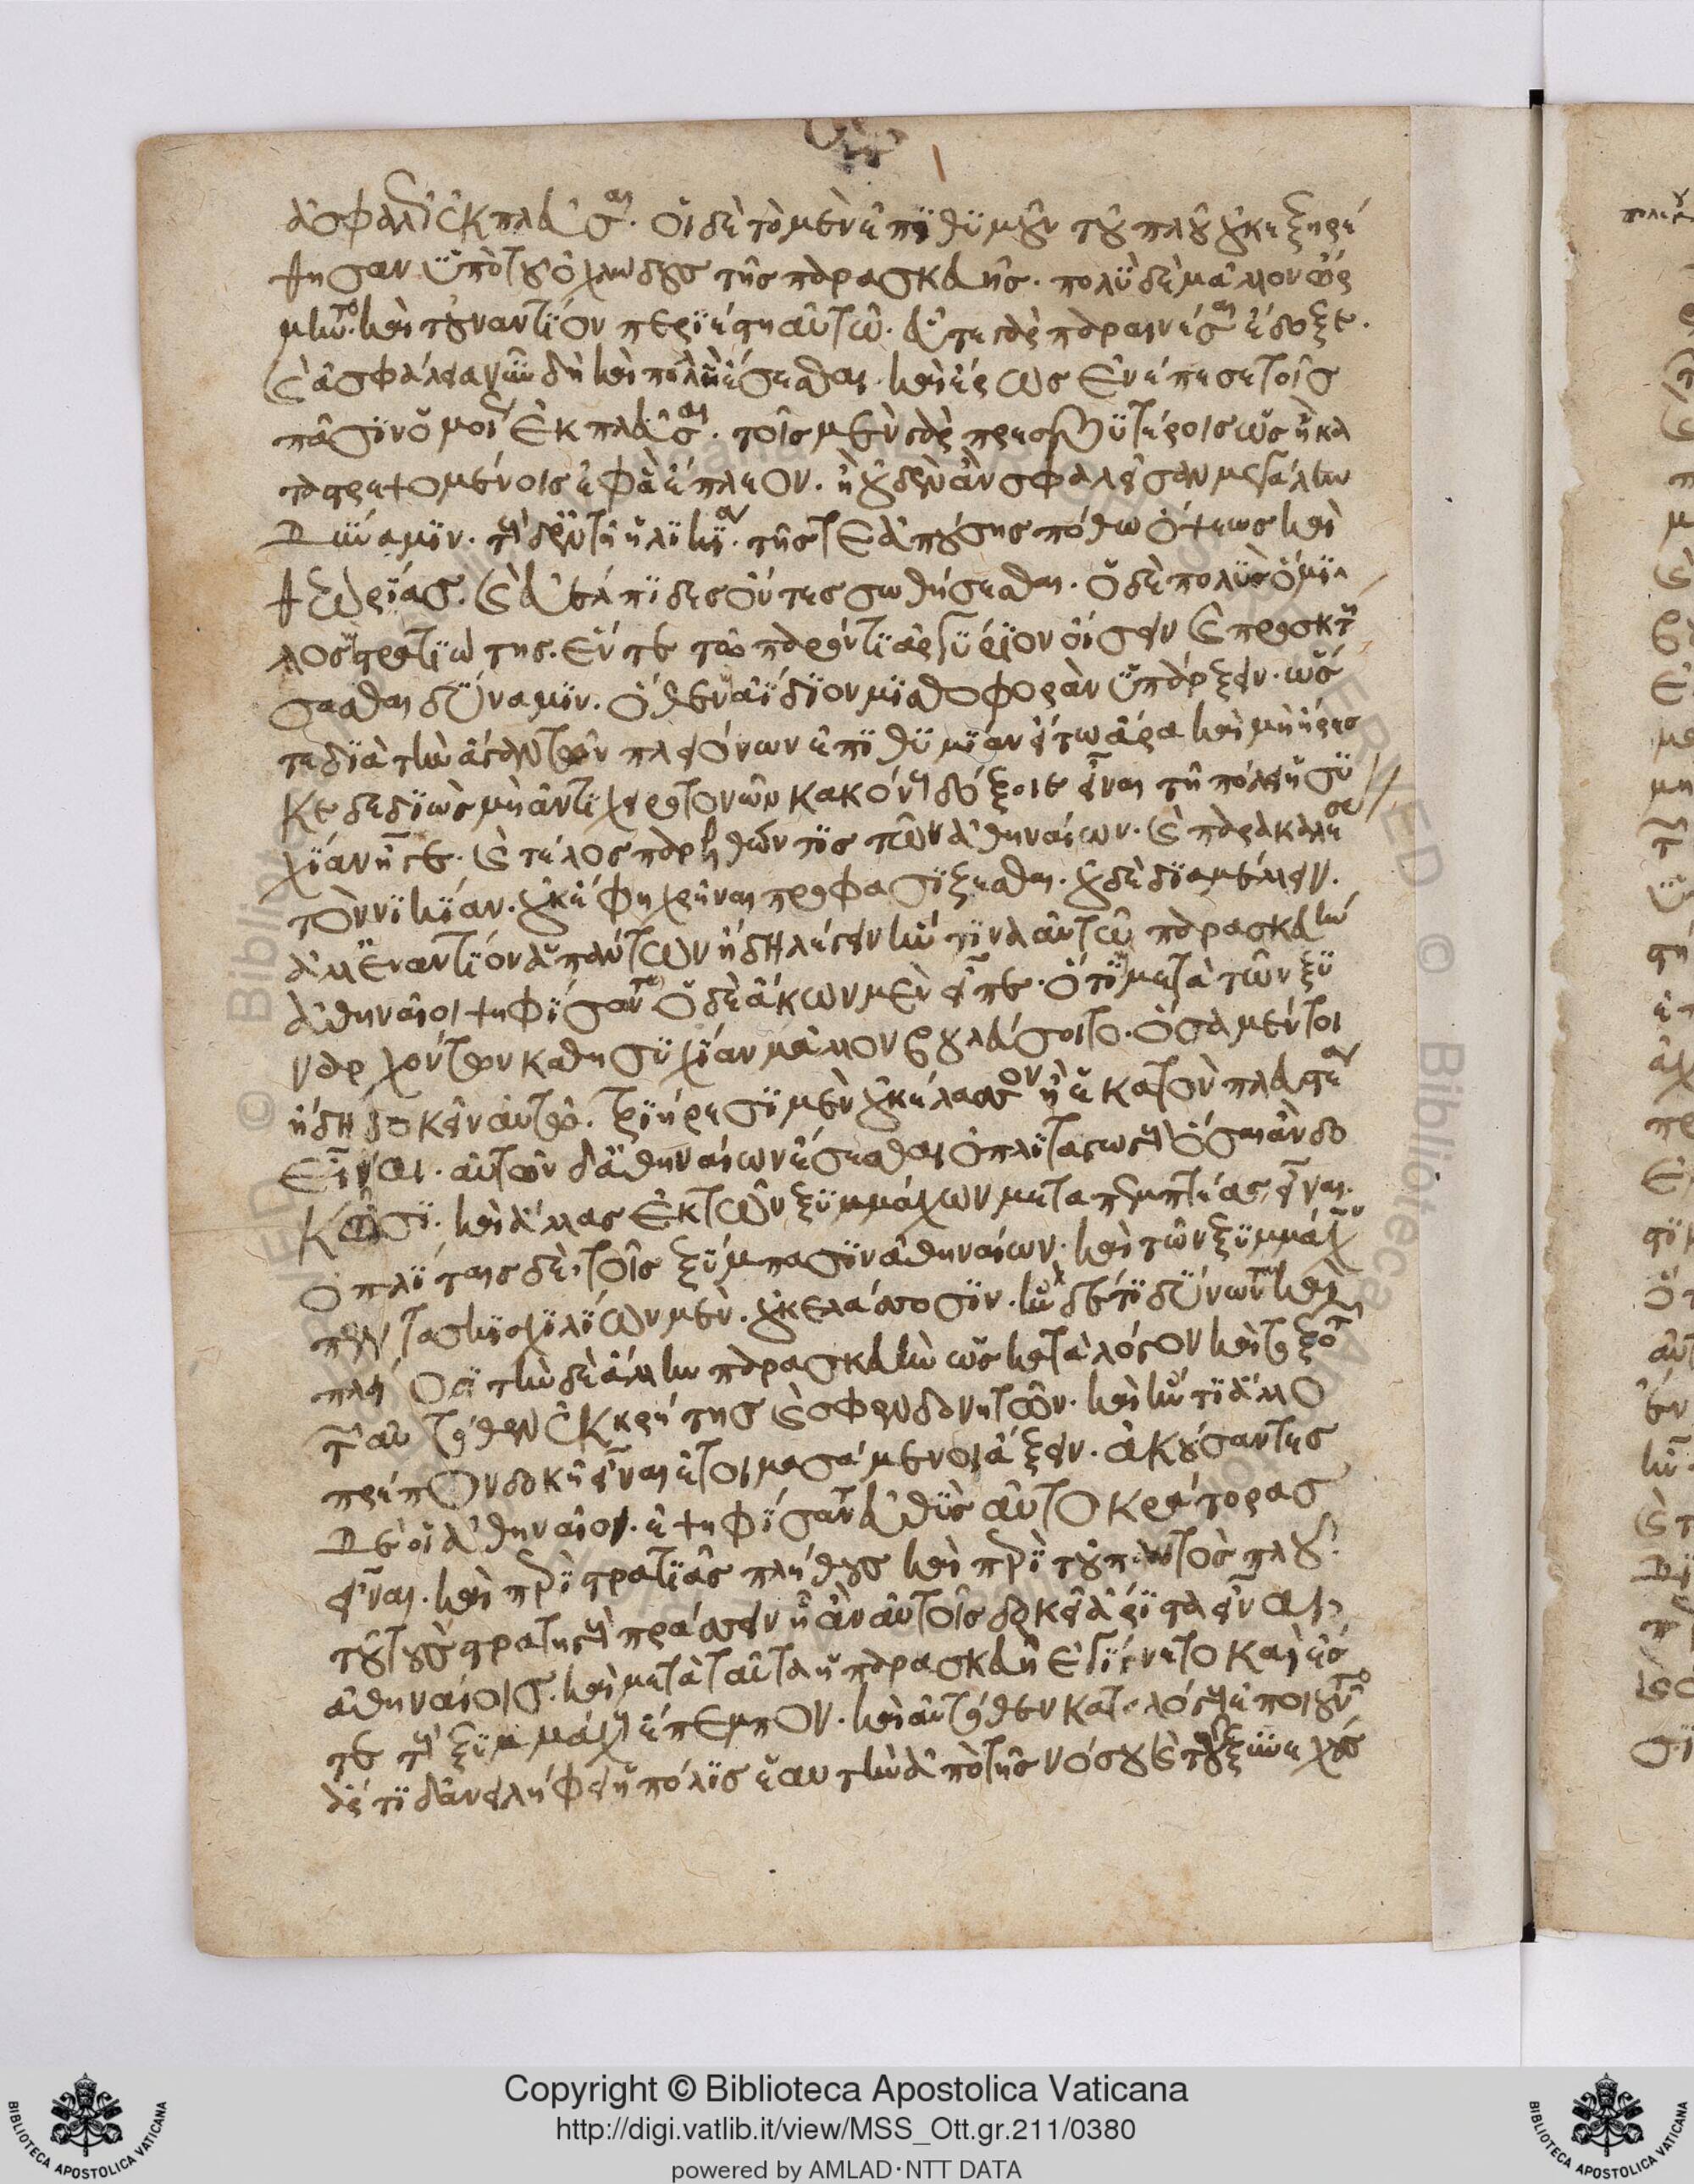 ἀσφαλῶς ἐκπλεῦσαι. οἱ δὲ τὸ μὲν ἐπιθυμοῦν τοῦ πλοῦ οὐκ ἐξηρέ
θησαν ὑπὸ τοῦ ὀχλώδους τῆς παρασκευῆς. πολὺ δὲ μᾶλλον ὥρ
μηντο. καὶ τοὐναντίον περιέστη αὐτῶ. εὖ τε γὰρ παραινέσαι ἔδοξε.
καὶ ἀσφάλεια νῦν δὴ καὶ πολλὴ ἔσεσθαι. καὶ ἔρως ἐνέπεσε τοῖς
πᾶσιν ὁμοίως ἐκπλεῦσαι. τοῖς μὲν γὰρ πρεσβυτέροις ὡς ἢ κα
ταστρεψομένοις ἐφ' ἃ ἔπλεον. ἢ οὐδὲν ἂν σφαλεῖσαν μεγάλην
δύναμιν. τοῖς δ' ἐν τῆ ἡλικία. τῆς τε ἀπούσης πόθω ὄψεως καὶ
θεωρίας. καὶ εὐέλπιδες ὄντες σωθήσεσθαι. ὁ δὲ πολὺς ὅμιλ
λος καὶ στρατιώτης. ἔν τε τῶ παρόντι ἀργύριον οἴσειν καὶ προσκτή
σασθαι δύναμιν. ὅθεν ἀΐδιον μισθοφορὰν ὑπάρξειν. ὥσ
τε διὰ τὴν ἄγαν τῶν πλειόνων ἐπιθυμίαν εἴ τω ἄρα καὶ μὴ ἤρεσ
κε δεδιὼς μὴ ἀντιχειροτονῶν κακόνους δόξειε εἶναι τῆ πόλει ἡσυ
χίαν ἦγε. καὶ τέλος παρελθών τις τῶν ἀθηναίων. καὶ παρακαλέσας
τὸν νικίαν. οὐκ ἔφη χρῆναι προφασίζεσθαι. οὐδὲ διαμέλλειν.
ἀλλ' ἐναντίον ἁπάντων ἤδη λέγειν ἥν τινα αὐτῶ παρασκευὴν
ἀθηναῖοι ψηφίσωνται. ὁ δὲ ἄκων μὲν εἶπε. ὅτι μετὰ τῶν ξυ
ναρχόντων καθ' ἡσυχίαν μᾶλλον βουλεύσοιτο. ὅσα μέντοι
ἤδη δοκεῖν αὐτῶ. τριήρεσι μὲν οὐκ ἔλασσον ἢ ἑκατὸν πλευστέα
εἶναι. αὐτῶν δ' ἀθηναίων ἔσεσθαι ὁπλιταγωγοὺς ὅσαι ἂν δο
κῶσι. καὶ ἄλλας ἐκ τῶν ξυμμάχων μεταπεμπτέας εἶναι.
ὁπλίταις δὲ, τοῖς ξύμπασιν ἀθηναίων. καὶ τῶν ξυμμάχων
πεντακισχιλίων μὲν. οὐκ ἐλάσσοσιν. ἢν δέ τι δύνωνται καὶ
πλείοσι τὴν δὲ ἄλλην παρασκευὴν ὡς κατὰ λόγον καὶ τοξοτῶν
τῶν αὐτόθεν ἐκ κρήτης καὶ σφενδονητῶν. καὶ ἤν τι ἄλλο
πρέπον δοκῆ εἶναι ἑτοιμασάμενοι ἄξειν. ἀκούσαντες
δὲ οἱ ἀθηναῖοι. ἐψηφίσαντο εὐθὺς αὐτοκράτορας
εἶναι. καὶ περὶ στρατιᾶς πλήθους καὶ περὶ τοῦ παντὸς πλοῦ
τοὺς στρατηγοὺς πράσσειν ἧ ἂν αὐτοῖς δοκῆ ἄριστα εἶναι
ἀθηναίοις. καὶ μετὰ ταῦτα ἡ παρασκευὴ ἐγίγνετο καὶ ἔς
τε τοὺς ξυμμάχους ἔπεμπον. καὶ αὐτόθεν καταλόγους ἐποιοῦντο
ἄρτι δ' ἀνειλήφει ἡ πόλις ἑαυτὴν ἀπὸ τῆς νόσου καὶ τοῦ ξυνεχοῦς
Copyright © Biblioteca Apostolica Vaticana
http://digi.vatlib.it/view/MSS_Ott.gr.211/0380
powered by AMLAD·NTT DATA